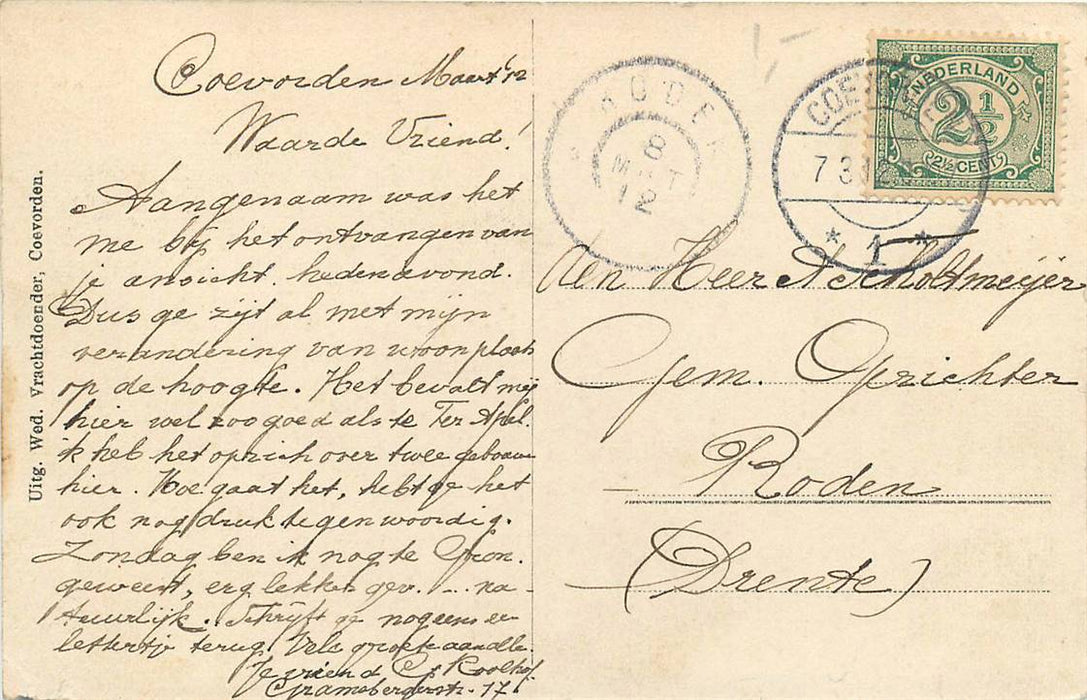 Coevorden Maart '12
Waarde Vriend!
Aangenaam was het
me bij het ontvangen van
je ansicht hedenavond.
Dus ge zijt al met mijn
verandering van woonplaats
op de hoogte. Het bevalt mij
hier wel zoo goed als te Ter Apel.
ik heb het opzich over twee gebouwen
hier. Hoe gaat het, hebt ge het
ook nog druk tegenwoordig.
Zondag ben ik nog te Gron.
geweest, erg lekker gev. ... na-
tuurlijk. Schrijft ge nog eens een
lettertje terug. Vele groete aan alle.
Je vriend G. Roolhof
Gramsbergerstr. 17
Uitg. Wed. Vrachtdoender, Coevorden.
RODEN
8
MRT
12
COEVORDEN
7 3 12
* 1 *
NEDERLAND
2½
2½ CENT
den Heer Scholtmeijer
Gem. Opzichter
Roden
(Drente)